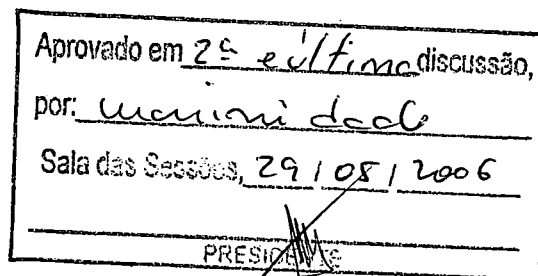 Aprovado em 2ª e última discussão,
por: unanimidade
Sala das Sessões, 29 / 05 / 2006
PRESIDENTE